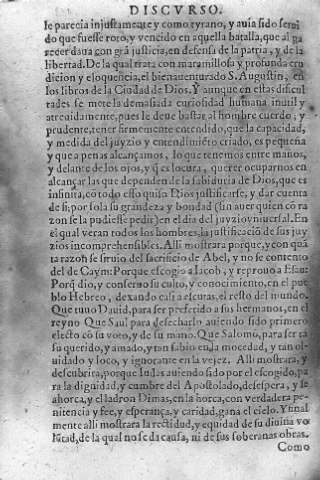 DISCVRSO.
le parecia injustamente y como tyrano, y auia sido serui
do que fuesse roto, y vencido en aquella batalla, que al pa
recer daua con grã justicia, en defensa de la patria, y de la
libertad. De la qual trata con marauillosa y profunda eru
dicion y eloquencia, el bienauenturado S. Augustin, en
los libros de la Ciudad de Dios. Y aunque en estas dificul
tades se mete la demasiada curiosidad humana inutil y
atreuidamente, pues le deue bastar al hombre cuerdo, y
prudente, tener firmemente entendido, que la capacidad,
y medida del juyzio y entendimiẽto criado, es pequeña
y que a penas alcançamos, lo que tenemos entre manos,
y delante de los ojos, y q̃ es locura, querer ocuparnos en
alcançar las que dependen de la sabiduria de Dios, que es
infinita, cõ todo esso quiso Dios justificarse, y dar cuenta
de si, por sola su grandeza y bondad (sin auer quien cõ ra
zon se la pudiesse pedir) en el dia del juyzio vniuersal. En
el qual veran todos los hombres, la justificaciõ de sus juy
zios incomprehensibles. Alli mostrara porque, y con quã
ta razoñ se siruio del sacrificio de Abel, y no se contento
del de Caym: Porque escogio a Iacob, y reprouo a Esau:
Porq̃ dio, y conseruo su culto, y conocimiento, en el pue
blo Hebreo, dexando casi a escuras, el resto del mundo.
Que tuuo Dauid, para ser preferido a sus hermanos, en el
reyno Que Saul para desecharlo auiendo sido primero
electo cõ su voto, y de su mano. Que Salomõ, para ser tã
su querido, y amado, y tan sabio en la mocedad, y tan ol-
uidado y loco, y ignorante en la vejez. Alli mostrara, y
descubrira, porque Iudas auiendo sido por el escogido, pa
ra la dignidad, y cumbre del Apostolado, desespera, y se
ahorca, y el ladron Dimas, en la horca, con verdadera pe-
nitencia y fee, y esperança, y caridad, gana el cielo. Y final
mente alli mostrara la rectitud, y equidad de su diuina vo
lũtad, de la qual no se da causa, ni de sus soberanas obras.
Como